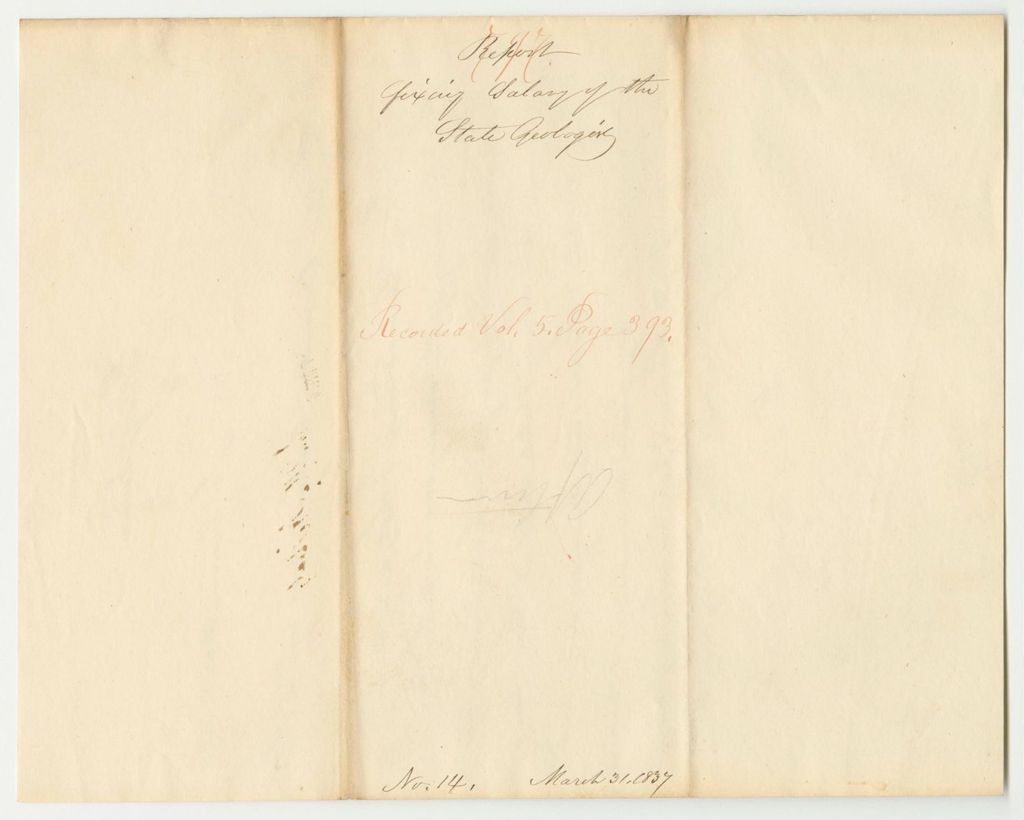 Report
fixing Salary of the
State Geologist
Recorded Vol. 5. Page 393.
No. 14. March 31. 1837